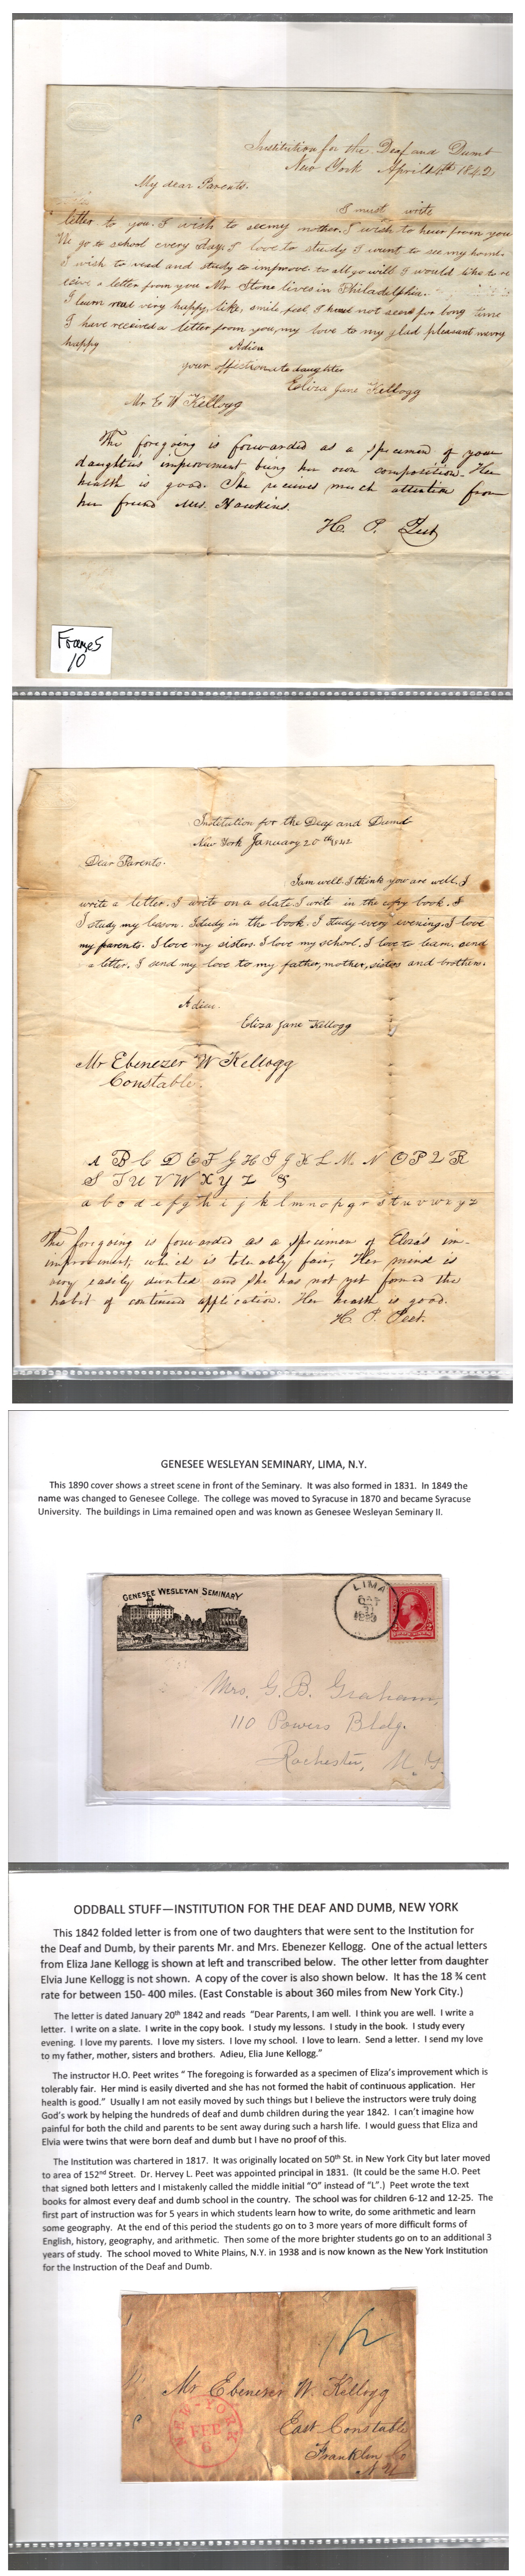 Institution for the Deaf and Dumb
New York April 4th 1842
My dear Parents.
I must write
letter to you. I wish to see my mother. I wish to hear from you
We go to school every day. I love to study I want to see my home.
I wish to read and study to improve to all go will I would like to re
ceive a letter from you Mr Stone lives in Philadelphia.
I learn read very happy, like, smile, feel I have not seen for long time
I have received a letter from you, my love to my glad pleasant merry
happy
Adieu
your affectionate daughter
Eliza Jane Kellogg
Mr E W Kellogg
The foregoing is forwarded as a specimen of your
daughters' improvement being her own composition. Her
health is good. She receives much attention from
her friend Mrs. Hawkins.
H. P. Peet
Frames
10
Institution for the Deaf and Dumb
New York January 20th 1842
Dear Parents.
I am well. I think you are well. I
write a letter. I write on a slate I write in the copy book. I
I study my lesson. I study in the book. I study every evening. I love
my parents. I love my sisters. I love my school. I love to learn. send
a letter. I send my love to my father, mother, sisters and brothers.
Adieu.
Eliza Jane Kellogg
Mr Ebenezer W Kellogg
Constable.
A B C D E F G H I J K L M N O P Q R
S T U V W X Y Z &
a b c d e f g h i j k l m n o p q r s t u v w x y z
The foregoing is forwarded as a specimen of Eliza's im-
improvement, which is tolerably fair, Her mind is
very easily diverted and she has not yet formed the
habit of continued application. Her health is good.
H. P. Peet.
GENESEE WESLEYAN SEMINARY, LIMA, N.Y.
This 1890 cover shows a street scene in front of the Seminary. It was also formed in 1831. In 1849 the
name was changed to Genesee College. The college was moved to Syracuse in 1870 and became Syracuse
University. The buildings in Lima remained open and was known as Genesee Wesleyan Seminary II.
GENESEE WESLEYAN SEMINARY
LIMA
OCT
31
Mrs. G. B. Graham,
110 Powers Bldg.
Rochester, N. Y.
ODDBALL STUFF—INSTITUTION FOR THE DEAF AND DUMB, NEW YORK
This 1842 folded letter is from one of two daughters that were sent to the Institution for
the Deaf and Dumb, by their parents Mr. and Mrs. Ebenezer Kellogg. One of the actual letters
from Eliza Jane Kellogg is shown at left and transcribed below. The other letter from daughter
Elvia June Kellogg is not shown. A copy of the cover is also shown below. It has the 18 ¾ cent
rate for between 150- 400 miles. (East Constable is about 360 miles from New York City.)
The letter is dated January 20th 1842 and reads "Dear Parents, I am well. I think you are well. I write a
letter. I write on a slate. I write in the copy book. I study my lessons. I study in the book. I study every
evening. I love my parents. I love my sisters. I love my school. I love to learn. Send a letter. I send my love
to my father, mother, sisters and brothers. Adieu, Elia June Kellogg."
The instructor H.O. Peet writes " The foregoing is forwarded as a specimen of Eliza's improvement which is
tolerably fair. Her mind is easily diverted and she has not formed the habit of continuous application. Her
health is good." Usually I am not easily moved by such things but I believe the instructors were truly doing
God's work by helping the hundreds of deaf and dumb children during the year 1842. I can't imagine how
painful for both the child and parents to be sent away during such a harsh life. I would guess that Eliza and
Elvia were twins that were born deaf and dumb but I have no proof of this.
The Institution was chartered in 1817. It was originally located on 50th St. in New York City but later moved
to area of 152nd Street. Dr. Hervey L. Peet was appointed principal in 1831. (It could be the same H.O. Peet
that signed both letters and I mistakenly called the middle initial "O" instead of "L".) Peet wrote the text
books for almost every deaf and dumb school in the country. The school was for children 6-12 and 12-25. The
first part of instruction was for 5 years in which students learn how to write, do some arithmetic and learn
some geography. At the end of this period the students go on to 3 more years of more difficult forms of
English, history, geography, and arithmetic. Then some of the more brighter students go on to an additional 3
years of study. The school moved to White Plains, N.Y. in 1938 and is now known as the New York Institution
for the Instruction of the Deaf and Dumb.
Mr Ebenezer W. Kellogg
East Constable
Franklin Co
N Y
NEW-YORK
FEB
6